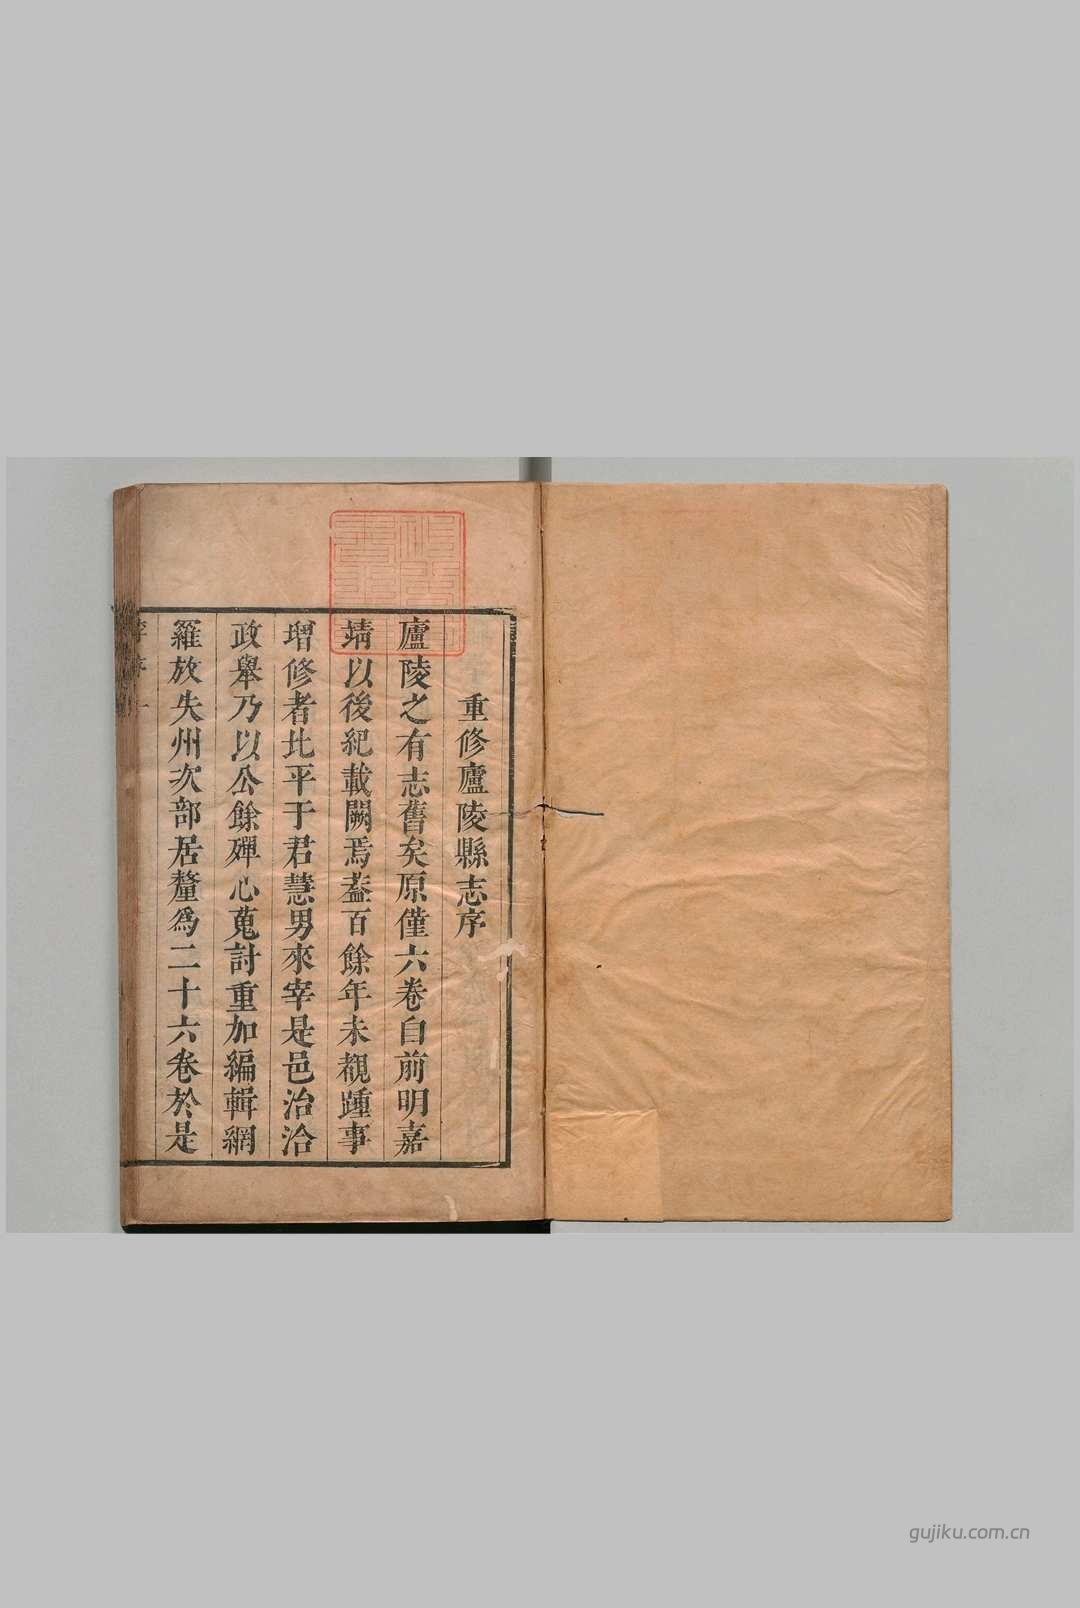 重修廬陵縣志序
廬陵之有志舊矣原僅六卷自前明嘉
靖以後紀載闕焉葢百餘年未覩踵事
增修者比平于君慧男來宰是邑治洽
政舉乃以公餘殫心蒐討重加編輯網
羅放失州次部居釐爲二十六卷於是
序 一
gujiku.com.cn